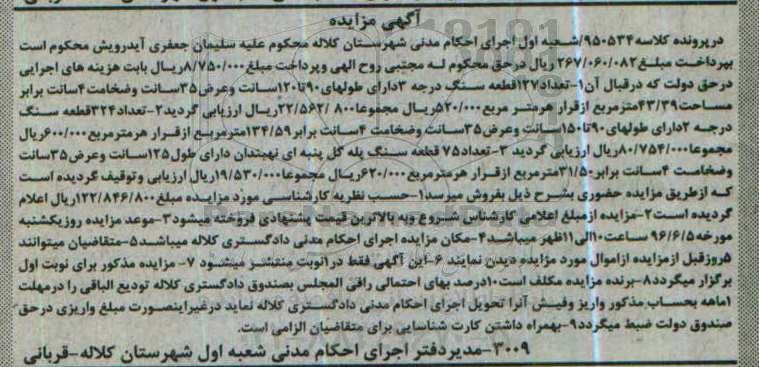 آگهی مزایده
درپرونده کلاسه ۹۵۰۵۳۴/شعبه اول اجرای احکام مدنی شهرستان کلاله محکوم علیه سلیمان جعفری آیدرویش محکوم است
بپرداخت مبلغ ۲۶۷/۰۶۰/۰۸۲ ریال درحق محکوم له مجتبی روح الهی وپرداخت مبلغ ۸/۷۵۰/۰۰۰ریال بابت هزینه های اجرایی
درحق دولت که درقبال آن۱-تعداد۱۲۷قطعه سنگ درجه ۳دارای طولهای۹۰تا۱۲۰سانت وعرض۳۵سانت وضخامت۴سانت برابر
مساحت۴۳/۳۹مترمربع ازقرار هرمتر مربع۵۲۰/۰۰۰ریال مجموعا۸۰۰ /۲۲/۵۶۲ریال ارزیابی گردید۲-تعداد۳۲۴قطعه سنگ
درجه ۲دارای طولهای۹۰تا۱۵۰سانت وعرض۳۵سانت وضخامت ۴سانت برابر۱۳۴/۵۹مترمربع ازقرار هرمترمربع۶۰۰/۰۰۰ریال
مجموعا۸۰/۷۵۴/۰۰۰ریال ارزیابی گردید ۳-تعداد۷۵ قطعه سنگ پله گل پنبه ای نهبندان دارای طول۱۲۵سانت وعرض۳۵سانت
وضخامت ۴سانت برابر۳۱/۵۰مترمربع ازقرار هرمترمربع۶۲۰/۰۰۰ریال مجموعا۱۹/۵۳۰/۰۰۰ریال ارزیابی وتوقیف گردیده است
که ازطریق مزایده حضوری بشرح ذیل بفروش میرسد۱-حسب نظریه کارشناسی مورد مزایده مبلغ۱۲۲/۸۴۶/۸۰۰ریال اعلام
گردیده است۲-مزایده ازمبلغ اعلامی کارشناس شروع وبه بالاترین قیمت پیشنهادی فروخته میشود۳-موعد مزایده روزیکشنبه
مورخه۹۶/۶/۵ ساعت۱۰الی۱۱ظهر میباشد۴-مکان مزایده اجرای احکام مدنی دادگستری کلاله میباشد۵-متقاضیان میتوانند
۵روزقبل ازمزایده ازاموال مورد مزایده دیدن نمایند ۶-این آگهی فقط در۱نوبت منتشر میشود ۷- مزایده مذکور برای نوبت اول
برگزار میگردد۸-برنده مزایده مکلف است۱۰درصد بهای احتمالی رافی المجلس بصندوق دادگستری کلاله تودیع الباقی را درمهلت
۱ماهه بحساب مذکور واریز وفیش آنرا تحویل اجرای احکام مدنی دادگستری کلاله نماید درغیراینصورت مبلغ واریزی درحق
صندوق دولت ضبط میگردد۹-بهمراه داشتن کارت شناسایی برای متقاضیان الزامی است.
۳۰۰۹-مدیردفتر اجرای احکام مدنی شعبه اول شهرستان کلاله-قربانی